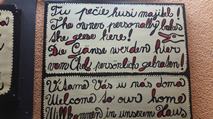 Tu pečie husi majiteľ!
The owner personally bakes
the geese here!
Die Gänse werden hier
vom Chef persönlich gebraten!
Vitame Vás u nás doma
Welcome to our home
Willkommen in unserem Haus